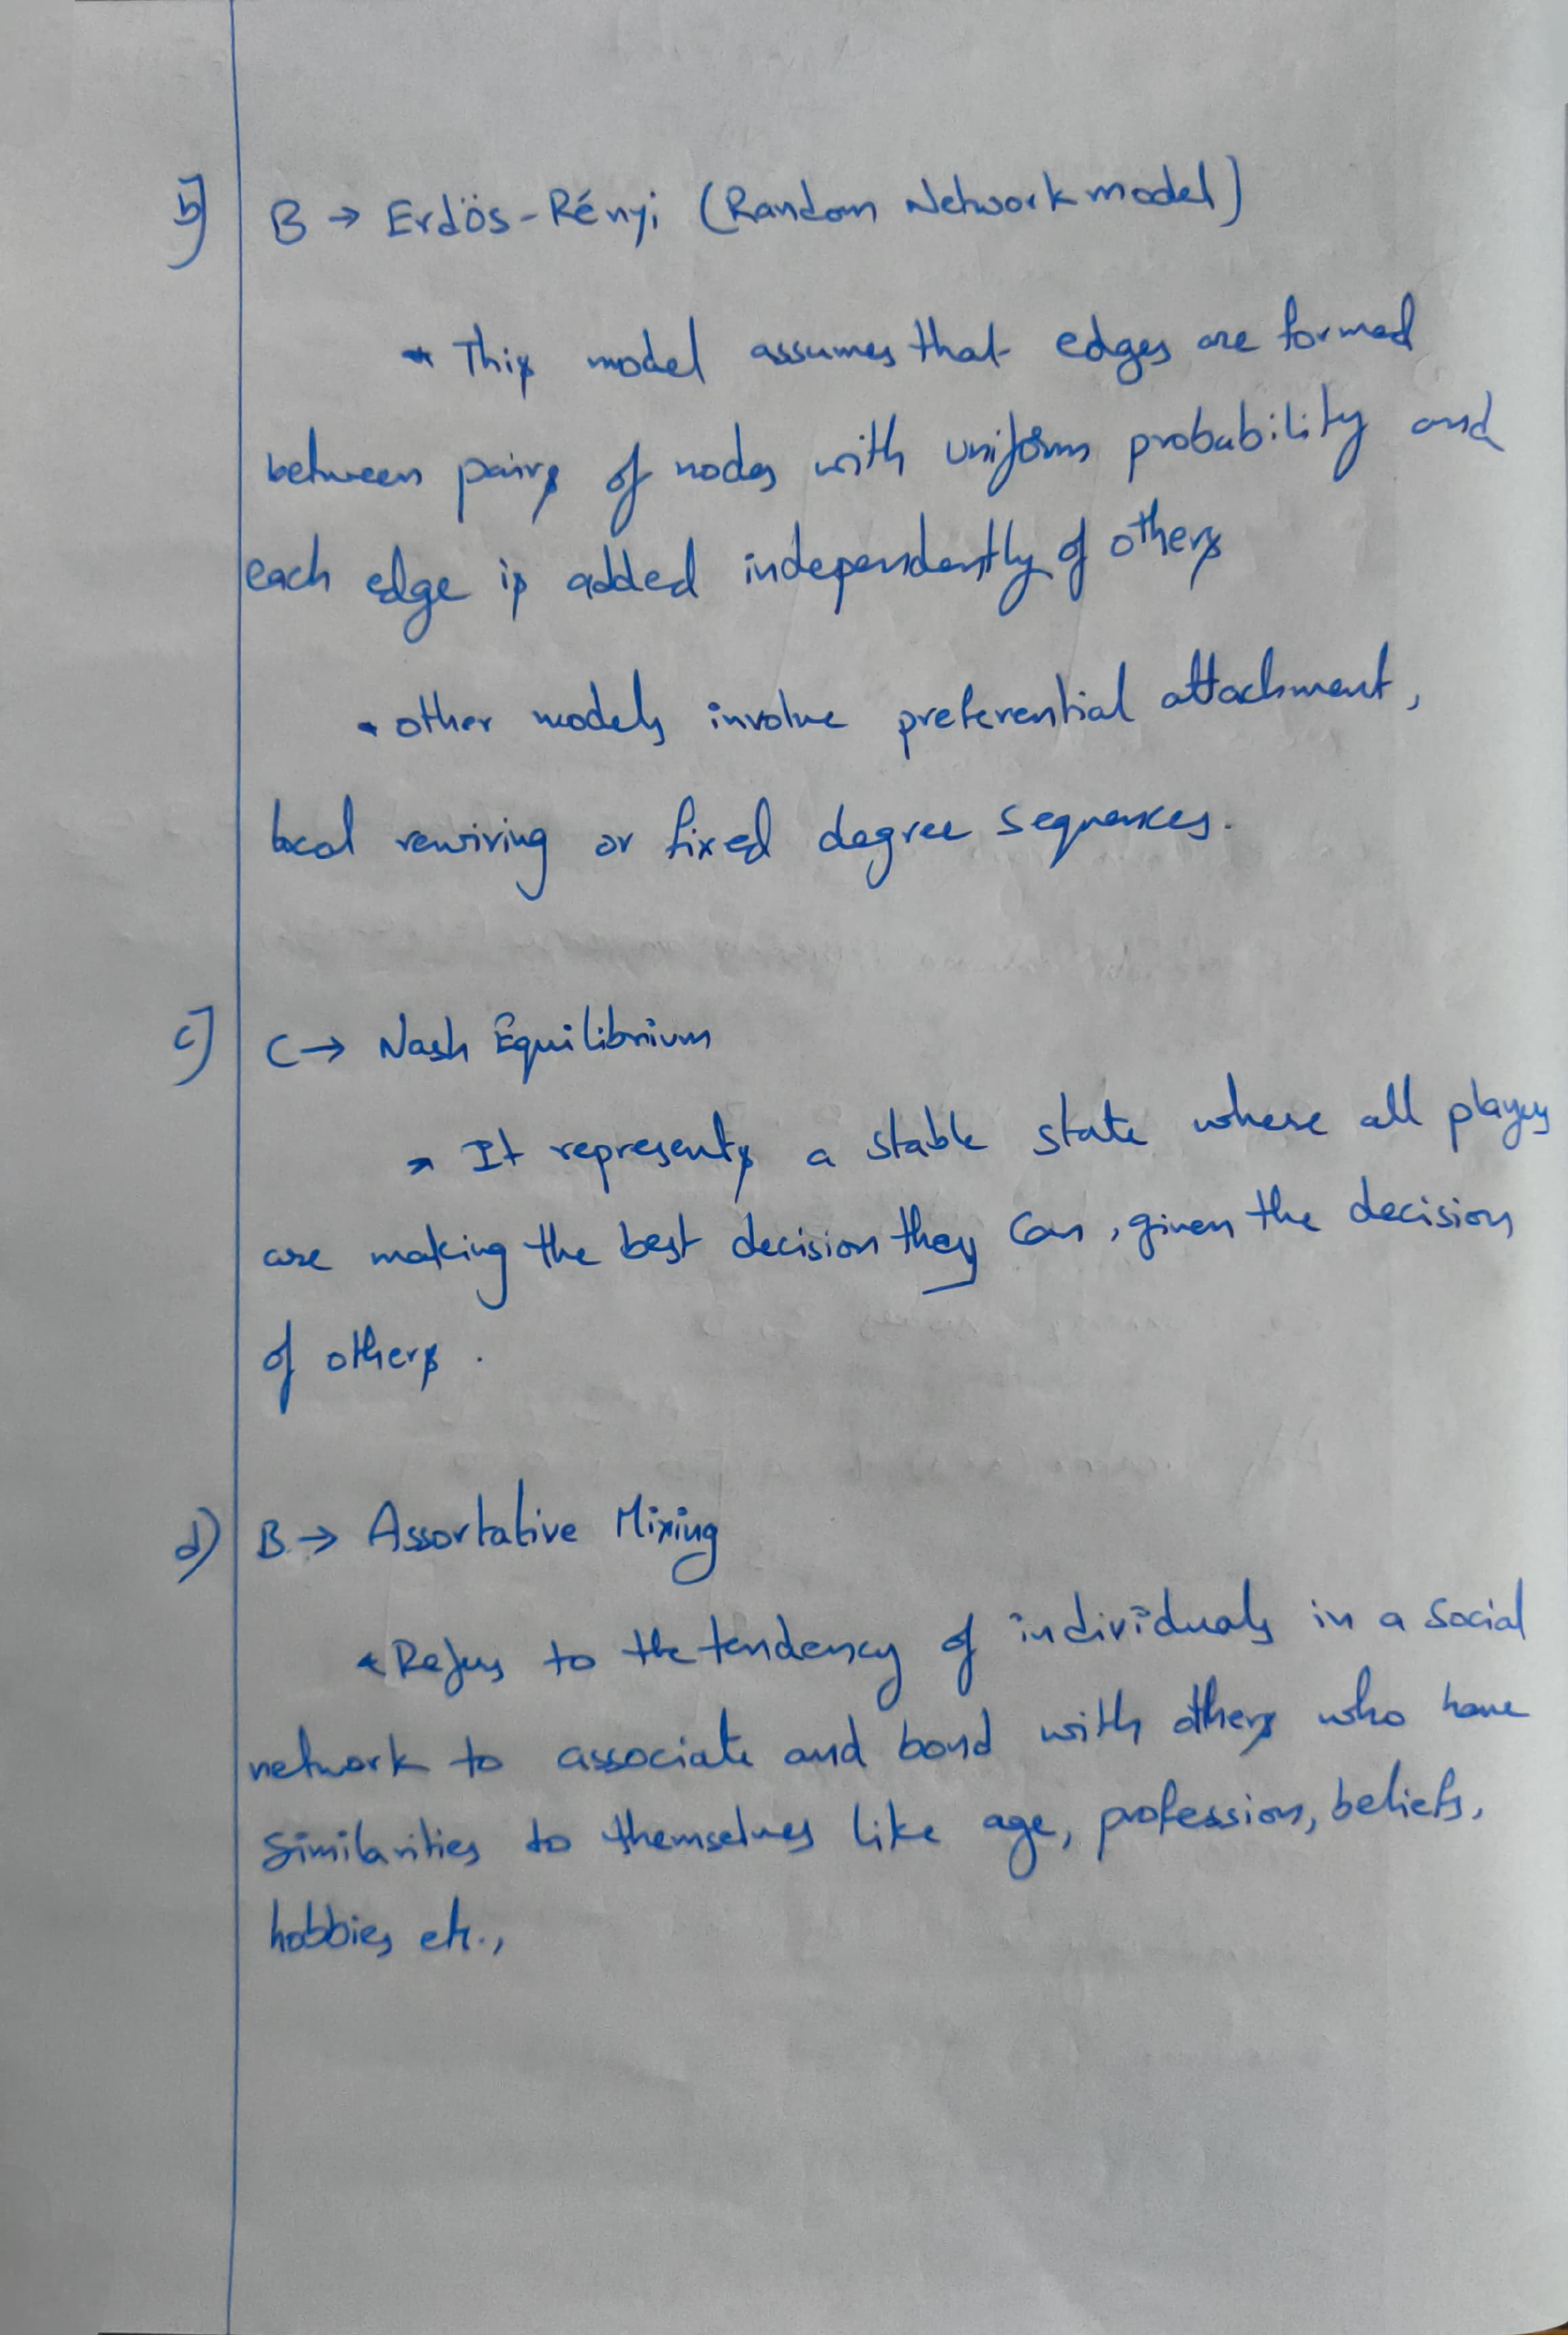 b] B → Erdös-Rényi (Random Network model)
* This model assumes that edges are formed
between pairs of nodes with uniform probability and
each edge is added independently of others
• other models involve preferential attachment,
local rewiring or fixed degree sequences.
c] C → Nash Equilibrium
* It represents a stable state where all players
are making the best decision they can, given the decision
of others.
d) B → Assortative Mixing
* Refers to the tendency of individuals in a social
network to associate and bond with others who have
similarities to themselves like age, profession, beliefs,
hobbies etc.,